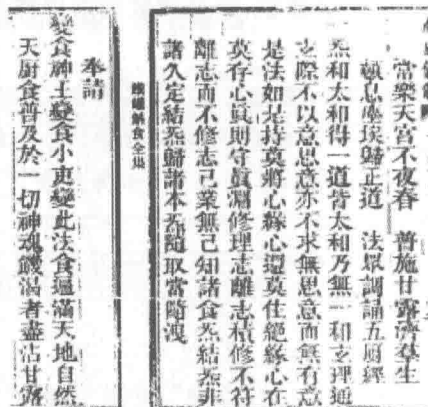 當樂天宮不夜春　普施甘露濟羣生
頓息塵埃歸正道　法眾調誦五厨經
炁和太和得一道皆太和乃無一和玄理通
玄際不以意思意亦不求無思意而無有意
是法如是持莫將心緣心還莫住絕緣心在
莫存心眞則守眞淵修理志離志積修不符
離志而不修志己業無己知諸食炁結炁非
諸久定結炁歸諸本炁隨取當隨洩
鐵罐斛食全集
奉請
變食神士變食小吏變此法食遍滿天地自然
天厨食普及於一切神魂饑渴者盡沾甘露